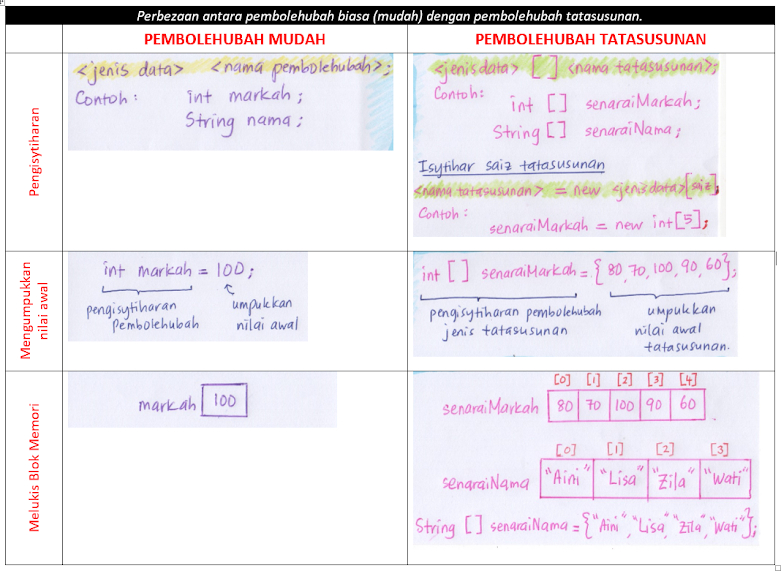 Perbezaan antara pembolehubah biasa (mudah) dengan pembolehubah tatasusunan.
PEMBOLEHUBAH MUDAH
PEMBOLEHUBAH TATASUSUNAN
Pengisytiharan
<jenis data> <nama pembolehubah>;
Contoh: int markah;
String nama;
<jenis data> [ ] <nama tatasusunan>;
Contoh:
int [ ] senaraiMarkah;
String [ ] senaraiNama;
Isytihar saiz tatasusunan
<nama tatasusunan> = new <jenis data>[saiz];
Contoh:
senaraiMarkah = new int[5];
Mengumpukkan
nilai awal
int markah = 100;
pengisytiharan
Pembolehubah
umpukkan
nilai awal
int [ ] senaraiMarkah = {80, 70, 100, 90, 60};
pengisytiharan pembolehubah
jenis tatasusunan
umpukkan
nilai awal
tatasusunan.
Melukis Blok Memori
markah 100
[0] [1] [2] [3] [4]
senaraiMarkah 80 70 100 90 60
[0] [1] [2] [3]
senaraiNama "Aini" "Lisa" "Zila" "Wati"
String [ ] senaraiNama = {"Aini", "Lisa", "Zila", "Wati"};